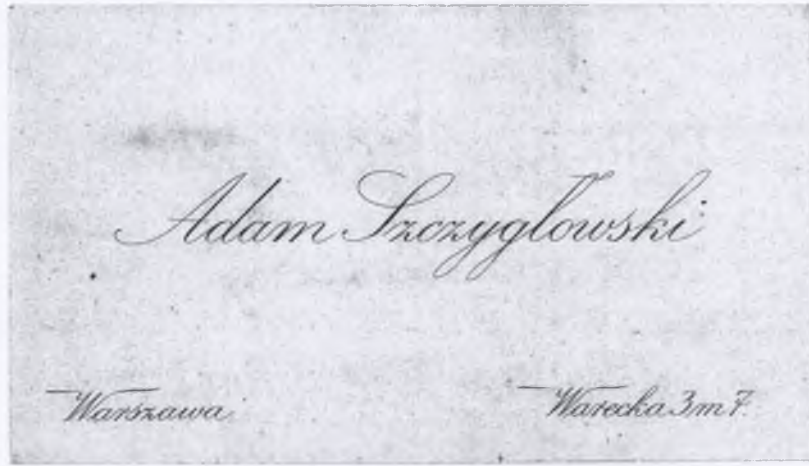 Adam Szczygłowski
Warszawa.
Warecka 3 m 7.